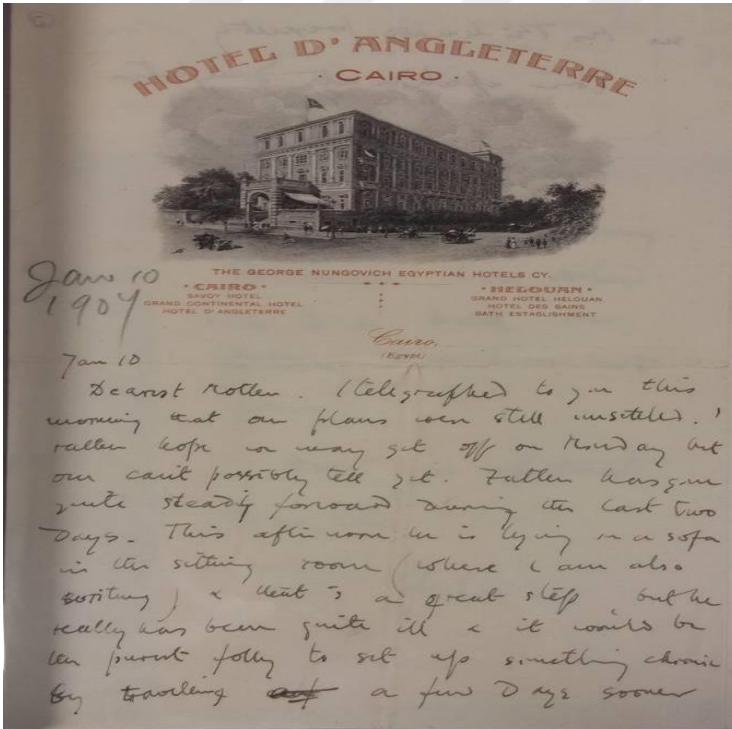 HOTEL D'ANGLETERRE
· CAIRO ·
THE GEORGE NUNGOVICH EGYPTIAN HOTELS CY.
· CAIRO ·
SAVOY HOTEL
GRAND CONTINENTAL HOTEL
HOTEL D'ANGLETERRE
· HELOUAN ·
GRAND HOTEL HELOUAN
HOTEL DES BAINS
BATH ESTABLISHMENT
Jan 10
1907
Cairo,
(Egypt)
Jan 10
Dearest Mother. I telegraphed to you this
morning that our plans were still unsettled. I
rather hope we may get off on Monday but
one can't possibly tell yet. Father has gone
quite steadily forward during the last two
Days. This afternoon he is lying on a sofa
in the sitting room (where I am also
writing) & that is a great step but he
really has been quite ill & it would be
the purest folly to set up something chronic
by travelling a few Days sooner